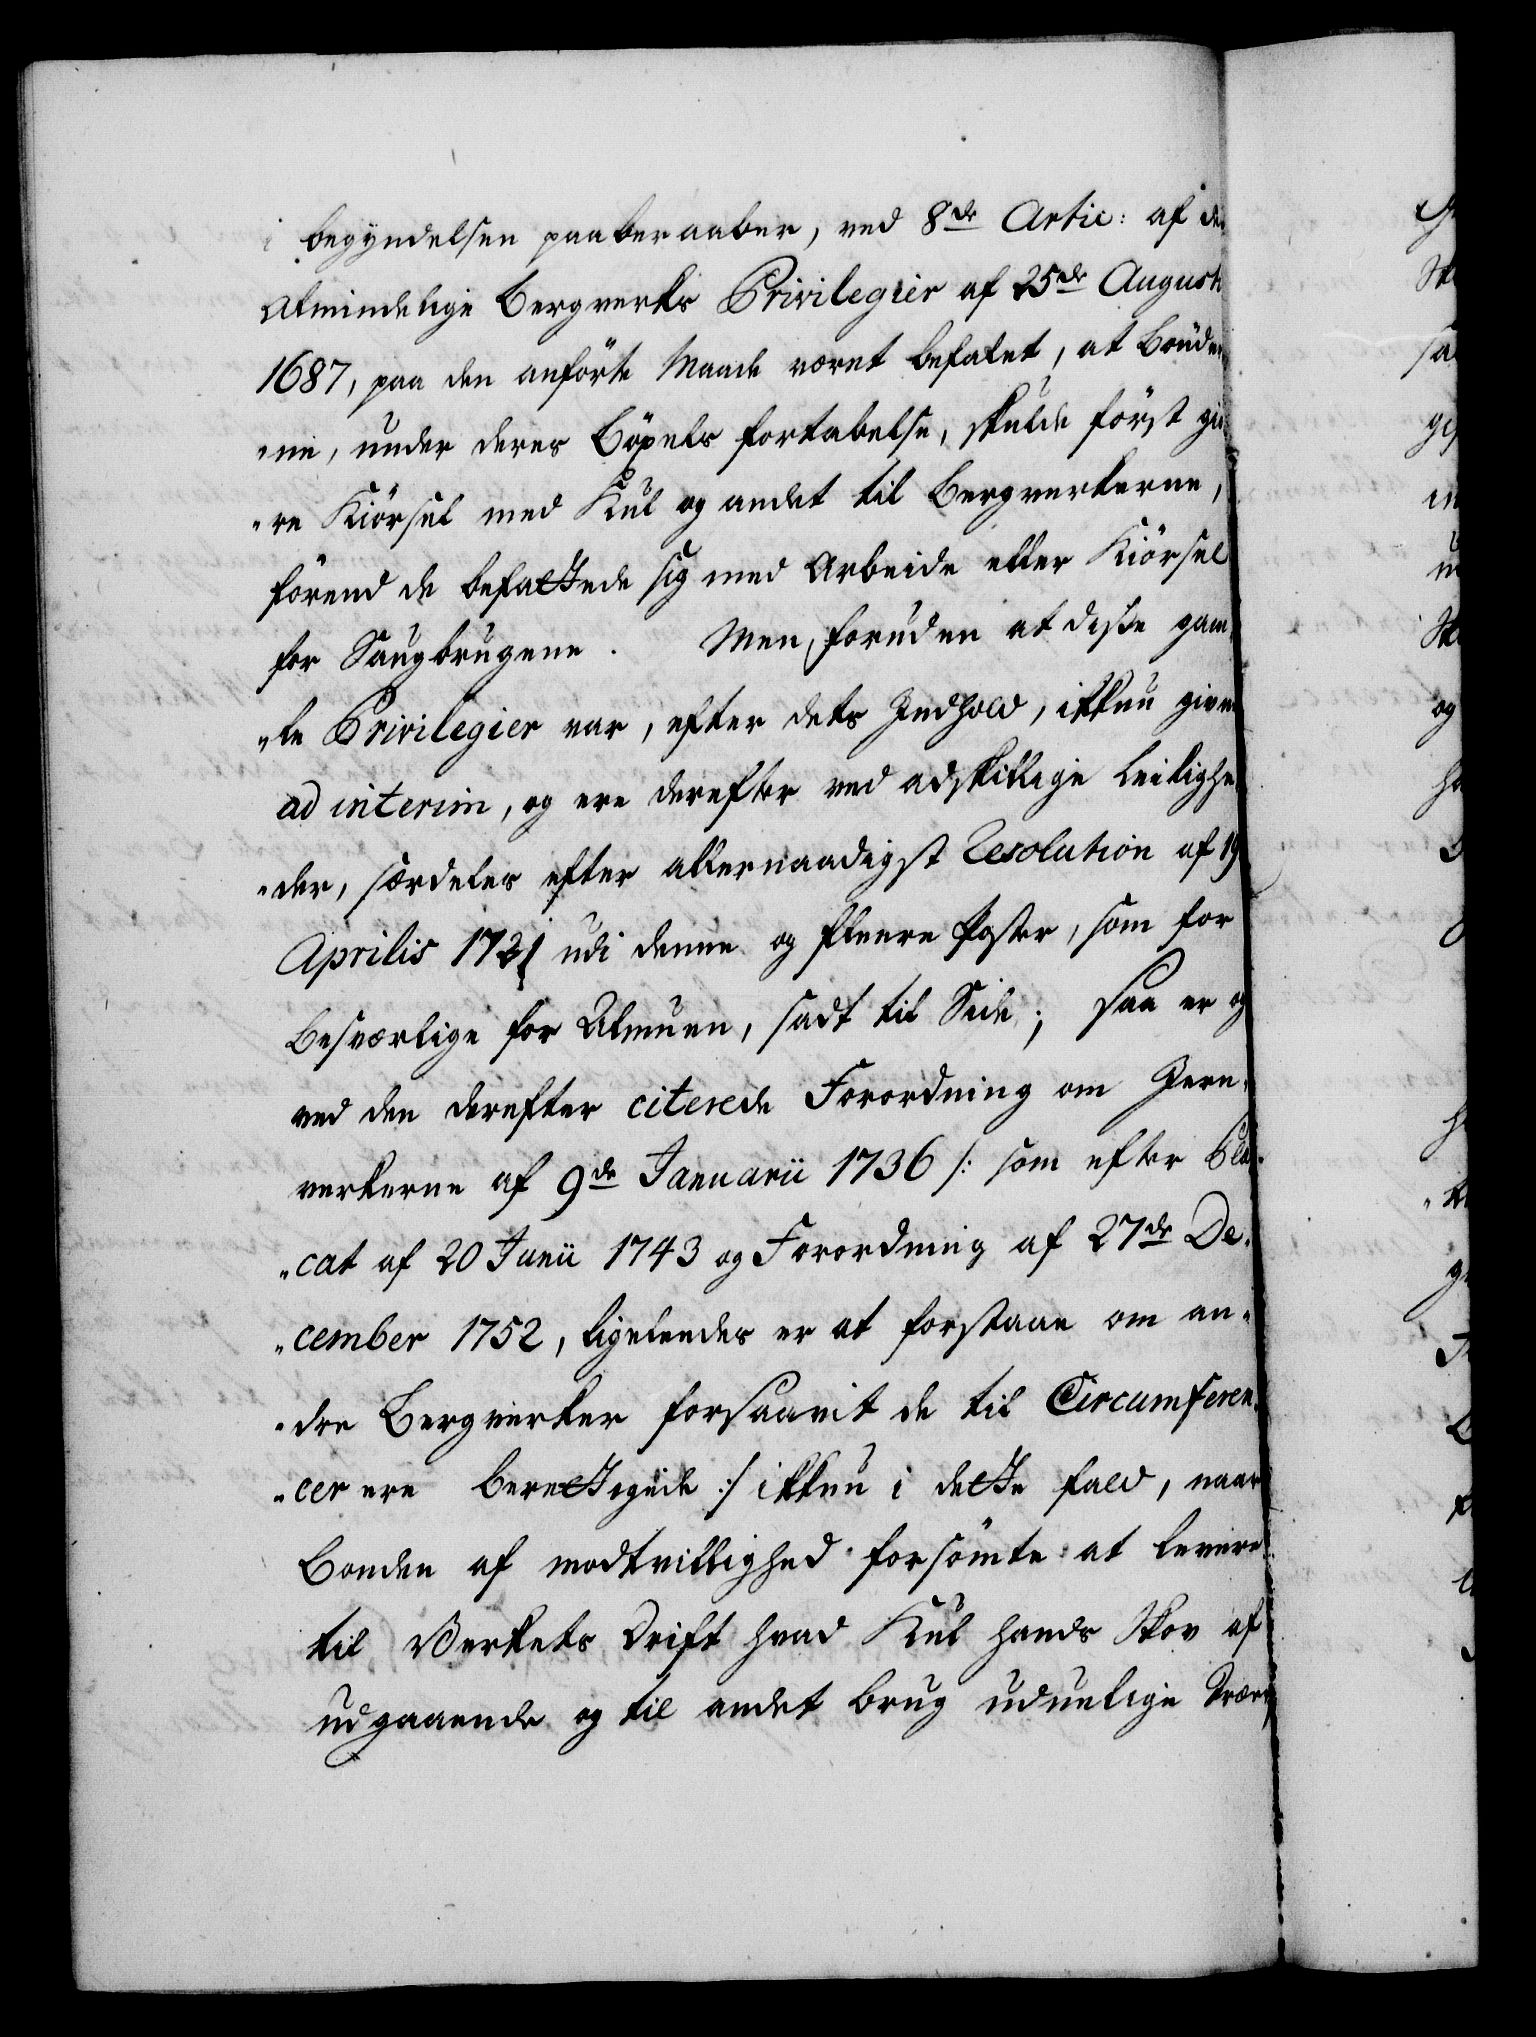 i begyndelsen paaberaaber, ved 8de Artic: af de
Almindelige Bergverks Privilegier af 25de Augusti
1687, paa den anförte Maade været befalet, at Bønder
„ne, under deres Böxels fortabelse, skulde först giö
„re Kiörsel med Kul og andet til Bergverkerne,
förend de befattede sig med Arbeide eller Kiörsel
for Saugbrugene. Men, foruden at disse gam
„le Privilegier var, efter dets Indhold, ikkun given
ad interim, og ere derefter ved adskillige Leilighe
„der, særdeles efter allernaadigst Resolution af 19
Aprilis 1721 udi denne og fleere Poster, som for
besværlige for Almuen, sadt til Side; saa er og
ved den derefter citerede Forordning om Jern-
verkerne af 9de Januarii 1736 /: som efter Pla-
„cat af 20 Junii 1743 og Forordning af 27de De-
„cember 1752, ligeledes er at forstaae om an-
„dre Bergverker forsaavit de til Circumferen-
„cer ere berettigede :/ ikkun i dette fald, naar
Bonden af modtvillighed forsömte at levere
til Verkets Drift hvad Kul hands Skov af
udgaaende og til andet brug uduelige Træer